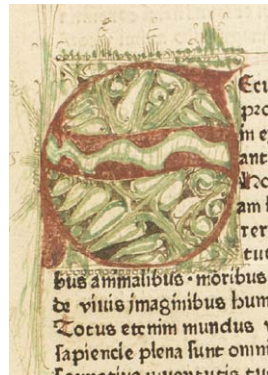 Secu
pro
in e
ant
No
am f
rer
tut
bus animalibus · moribus
de viuis jmaginibus hum
Totus etenim mundus v
sapiencie plena sunt omni